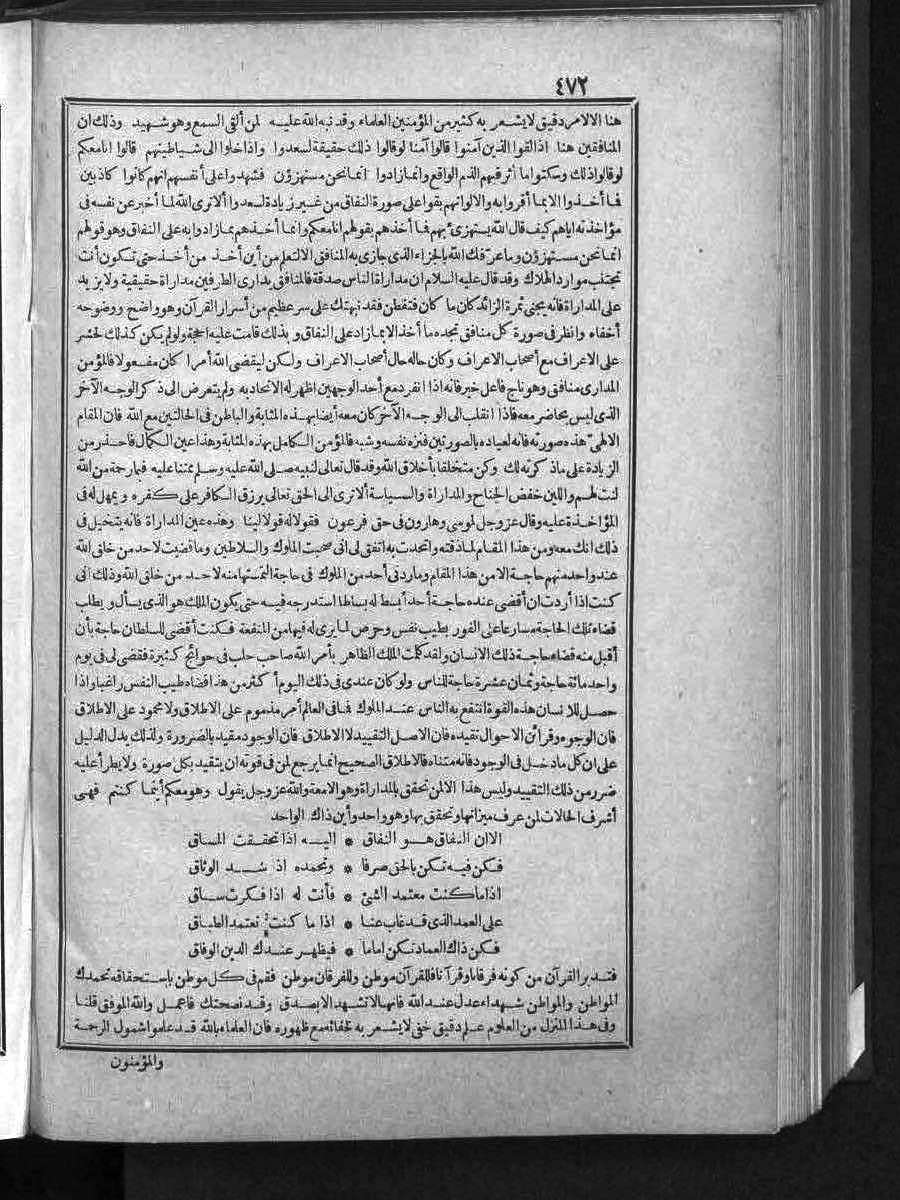 ٤٧٢
هنا الا لامر دقيق لا يشعر به كثير من المؤمنين العلماء وقد نبه الله عليه لمن ألقى السمع وهو شهيد وذلك ان
المنافقين هنا اذا لقوا الذين آمنوا قالوا آمنا لو قالوا ذلك حقيقة لسعدوا واذا خلوا الى شياطينهم قالوا انا معكم
لو قالوا ذلك وسكتوا ما أثر فيهم الذم الواقع وانما زادوا انما نحن مستهزؤن فشهدوا على أنفسهم انهم كانوا كاذبين
فما أخذوا الا بما أقروا به والا لو انهم بقوا على صورة النفاق من غير زيادة لسعدوا ألا ترى الله لما أخبر عن نفسه فى
مؤاخذته اياهم كيف قال الله يستهزئ بهم فما أخذهم بقولهم انا معكم وانما أخذهم بما زادوا به على النفاق وهو قولهم
انما نحن مستهزؤن وما عرفك الله بالجزاء الذى جازى به المنافق الا لتعلم من أين أخذ من أخذ حتى تكون أنت
تجتنب موارد الهلاك وقد قال عليه السلام ان مداراة الناس صدقة فالمنافق يدارى الطرفين مداراة حقيقية ولا يزيد
على المداراة فانه يجنى ثمرة الزائد كان ما كان فتفطن فقد نبهتك على سر عظيم من أسرار القرآن وهو واضح ووضوحه
أخفاه وانظر فى صورة كل منافق تجده ما أخذ الا بما زاد على النفاق وبذلك قامت عليه الحجة ولو لم يكن كذلك لحشر
على الاعراف مع أصحاب الاعراف وكان حاله حال أصحاب الاعراف ولكن ليقضى الله أمرا كان مفعولا فالمؤمن
المدارى منافق وهو ناج فاعل خير فانه اذا انفرد مع أحد الوجهين اظهر له الاتحاد به ولم يتعرض الى ذكر الوجه الآخر
الذى ليس بحاضر معه فاذا انقلب الى الوجه الآخر كان معه أيضا بهذه المثابة والباطن فى الحالتين مع الله فان المقام
الالهى هذه صورته فانه لعباده بالصورتين فنزه نفسه وشبه فالمؤمن الكامل بهذه المثابة وهذا عين الكمال فاحذر من
الزيادة على ما ذكرته لك وكن متخلقا بأخلاق الله وقد قال تعالى لنبيه صلى الله عليه وسلم ممتنا عليه فبما رحمة من الله
لنت لهم واللين خفض الجناح والمداراة والسياسة ألا ترى الى الحق تعالى يرزق الكافر على كفره ويمهل له فى
المؤاخذة عليه وقال عز وجل لموسى وهارون فى حق فرعون فقولا له قولا لينا وهذه عين المداراة فانه يتخيل فى
ذلك انك معه ومن هذا المقام لما ذقته واتحدت به اتفق لى انى صحبت الملوك والسلاطين وما قضيت لاحد من خلق الله
عند واحد منهم حاجة الا من هذا المقام وما ردنى أحد من الملوك فى حاجة التمستها منه لاحد من خلق الله وذلك انى
كنت اذا أردت ان أقضى عنده حاجة أحد أبسط له بساطا استدرجه فيه حتى يكون الملك هو الذى يسأل ويطلب
قضاء تلك الحاجة مسارعا على الفور بطيب نفس وحرص لما يرى له فيها من المنفعة فكنت أقضى للسلطان حاجة بأن
أقبل منه قضاء حاجة ذلك الانسان ولقد كلمت الملك الظاهر بأمر الله صاحب حلب فى حوائج كثيرة فقضى لى فى يوم
واحد مائة حاجة وثمان عشرة حاجة للناس ولو كان عندى فى ذلك اليوم أكثر من هذا قضاه طيب النفس راغبا واذا
حصل للانسان هذه القوة انتفع به الناس عند الملوك فما فى العالم أمر مذموم على الاطلاق ولا محمود على الاطلاق
فان الوجوه وقرائن الاحوال تقيده فان الاصل التقييد لا الاطلاق فان الوجود مقيد بالضرورة ولذلك يدل الدليل
على ان كل ما دخل فى الوجود فانه متناه فالاطلاق الصحيح انما يرجع لمن فى قوته ان يتقيد بكل صورة ولا يطرأ عليه
ضرر من ذلك التقييد وليس هذا الا لمن تحقق بالمداراة وهو الامعة والله عز وجل يقول وهو معكم أينما كنتم فهى
أشرف الحالات لمن عرف ميزانها وتحقق بها وهو واحد وأين ذاك الواحد
الا ان النفاق هو النفاق * اليه اذا تحققت المساق
فكن فيه تكن بالحق صرفا * وتحمده اذ شد الوثاق
اذا ما كنت معتمد الشئ * فأنت له اذا فكرت ساق
على العمد الذى قد غاب عنا * اذا ما كنت تعتمد الطباق
فكن ذاك العماد تكن اماما * فيظهر عندك الدين الوفاق
فتدبر القرآن من كونه فرقانا وقرآنا فللقرآن موطن وللفرقان موطن فقم فى كل موطن باستحقاقه تحمدك
المواطن والمواطن شهداء عدل عند الله فانها لا تشهد الا بصدق وقد نصحتك فاعمل والله الموفق قلنا
وفى هذا المنزل من العلوم علم دقيق خفى لا يشعر به لخفائه مع ظهوره فان العلماء بالله قد علموا شمول الرحمة
والمؤمنون